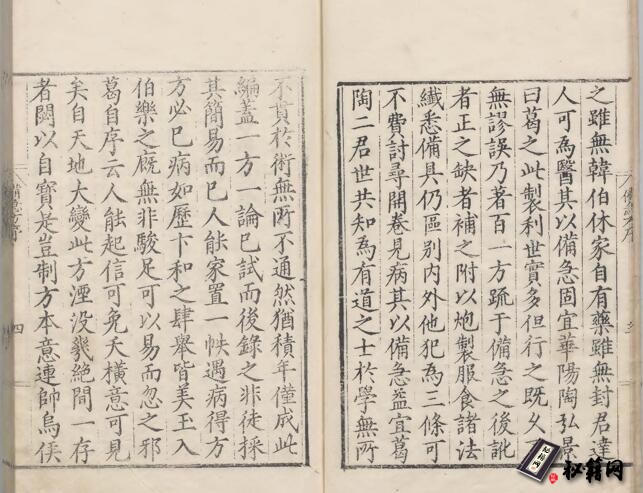 之雖無韓伯休家自有藥雖無封君達
人可為醫其以備急固宜華陽陶弘景
曰葛之此製利世實多但行之既久不
無謬誤乃著百一方疏于備急之後訛
者正之缺者補之附以炮製服食諸法
纖悉備具仍區別內外他犯為三條可
不費討尋開卷見病其以備急益宜葛
陶二君世共知為有道之士於學無所
備急方序
三
不貫於術無所不通然猶積年僅成此
編蓋一方一論已試而後錄之非徒採
其簡易而已人能家置一帙遇病得方
方必已病如歷卞和之肆舉皆美玉入
伯樂之廐無非駿足可以易而忽之邪
葛自序云人能起信可免夭橫意可見
矣自天地大變此方湮沒㡬絕間一存
者閟以自寶是豈制方本意連帥烏侯
備急方序
四
秘籍网
秘籍网